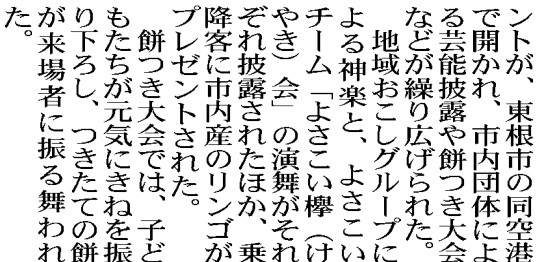 ントが、東根市の同空港
で開かれ、市内団体によ
る芸能披露や餅つき大会
などが繰り広げられた。
　地域おこしグループに
よる神楽と、よさこい
チーム「よさこい欅（け
やき）会」の演舞がそれ
ぞれ披露されたほか、乗
降客に市内産のリンゴが
プレゼントされた。
　餅つき大会では、子ど
もたちが元気にきねを振
り下ろし、つきたての餅
が来場者に振る舞われ
た。